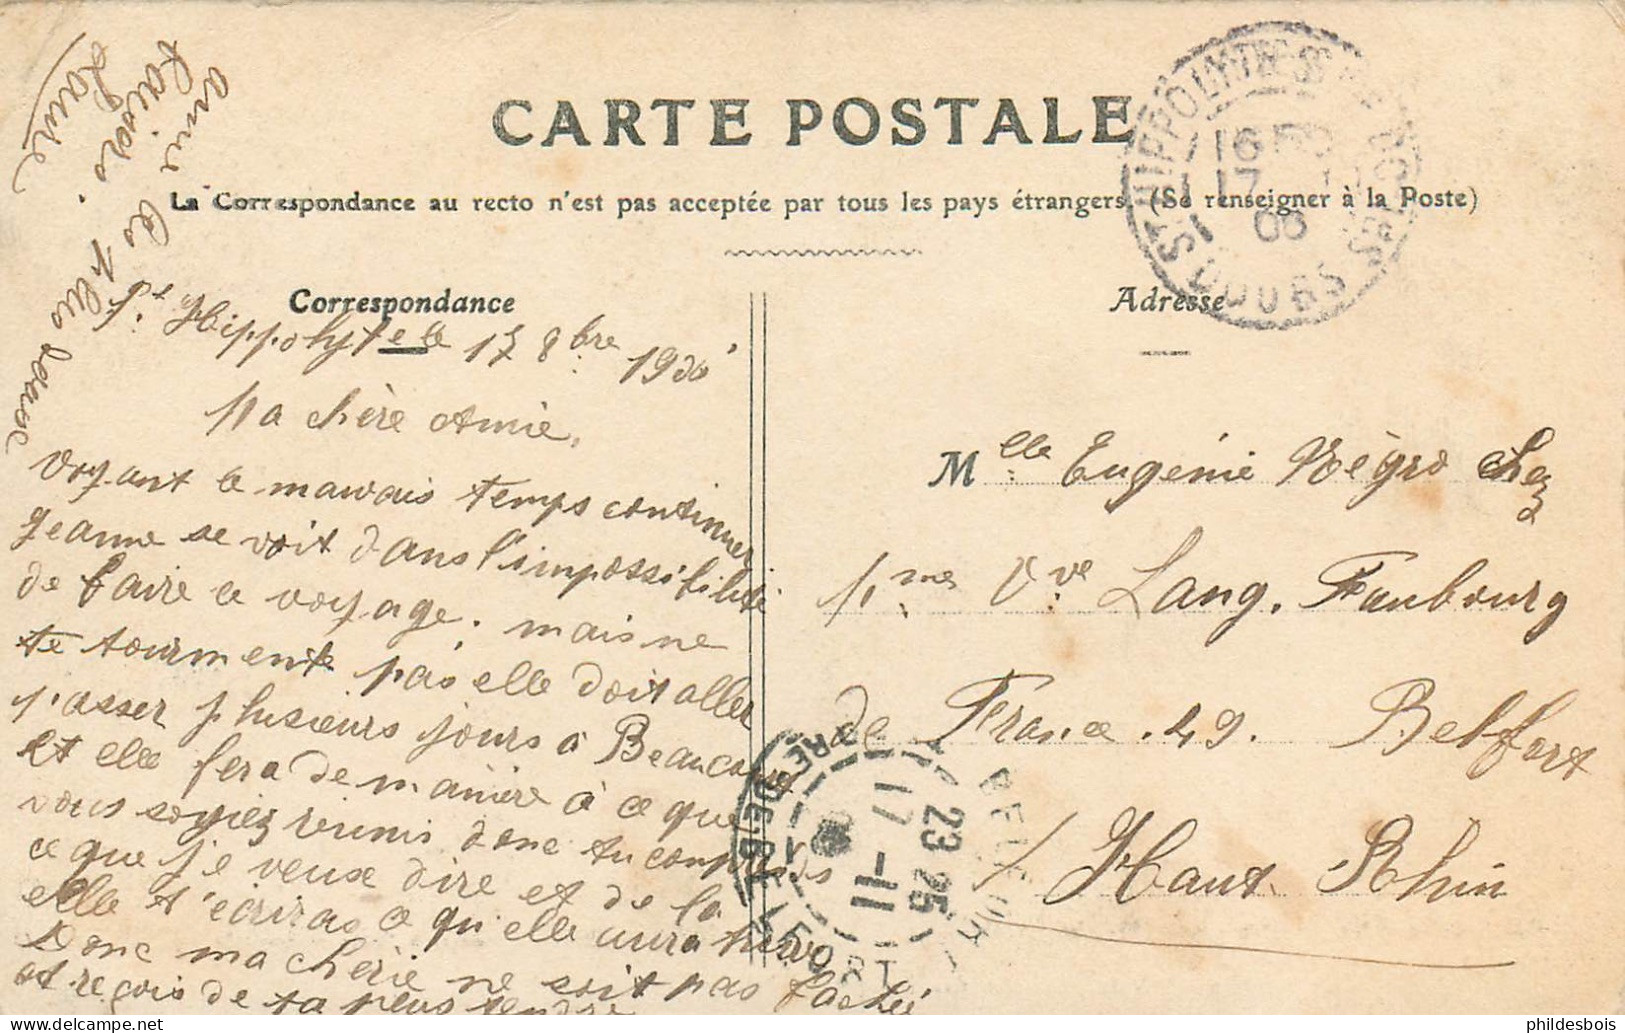 CARTE POSTALE
La Correspondance au recto n'est pas acceptée par tous les pays étrangers. (Se renseigner à la Poste)
Correspondance
St Hippolyte le 17 8bre 190
Ma chère Amie,
Voyant le mauvais temps continuer
Jeanne se voit dans l'impossibilité
de faire ce voyage. mais ne
te tourmente pas elle doit aller
passer plusieurs jours à Beaucourt
et elle fera de manière à ce que
vous soyiez réunis donc tu comprends
ce que je veux dire et de la
elle t'écriras ce qu'elle aura
Donc ma chérie ne soit pas fachée
et reçois de ta plus tendre
amie les plus doux
baisers.
Adresse
Mlle Eugénie Négro chez
Mme Vve Lang. Faubourg
de France. 49. Belfort
Haut Rhin
ST HIPPOLYTE
16
17
08
DOUBS
BELFORT
23 25
17 - 11
RE DE BELFORT
phildesbois